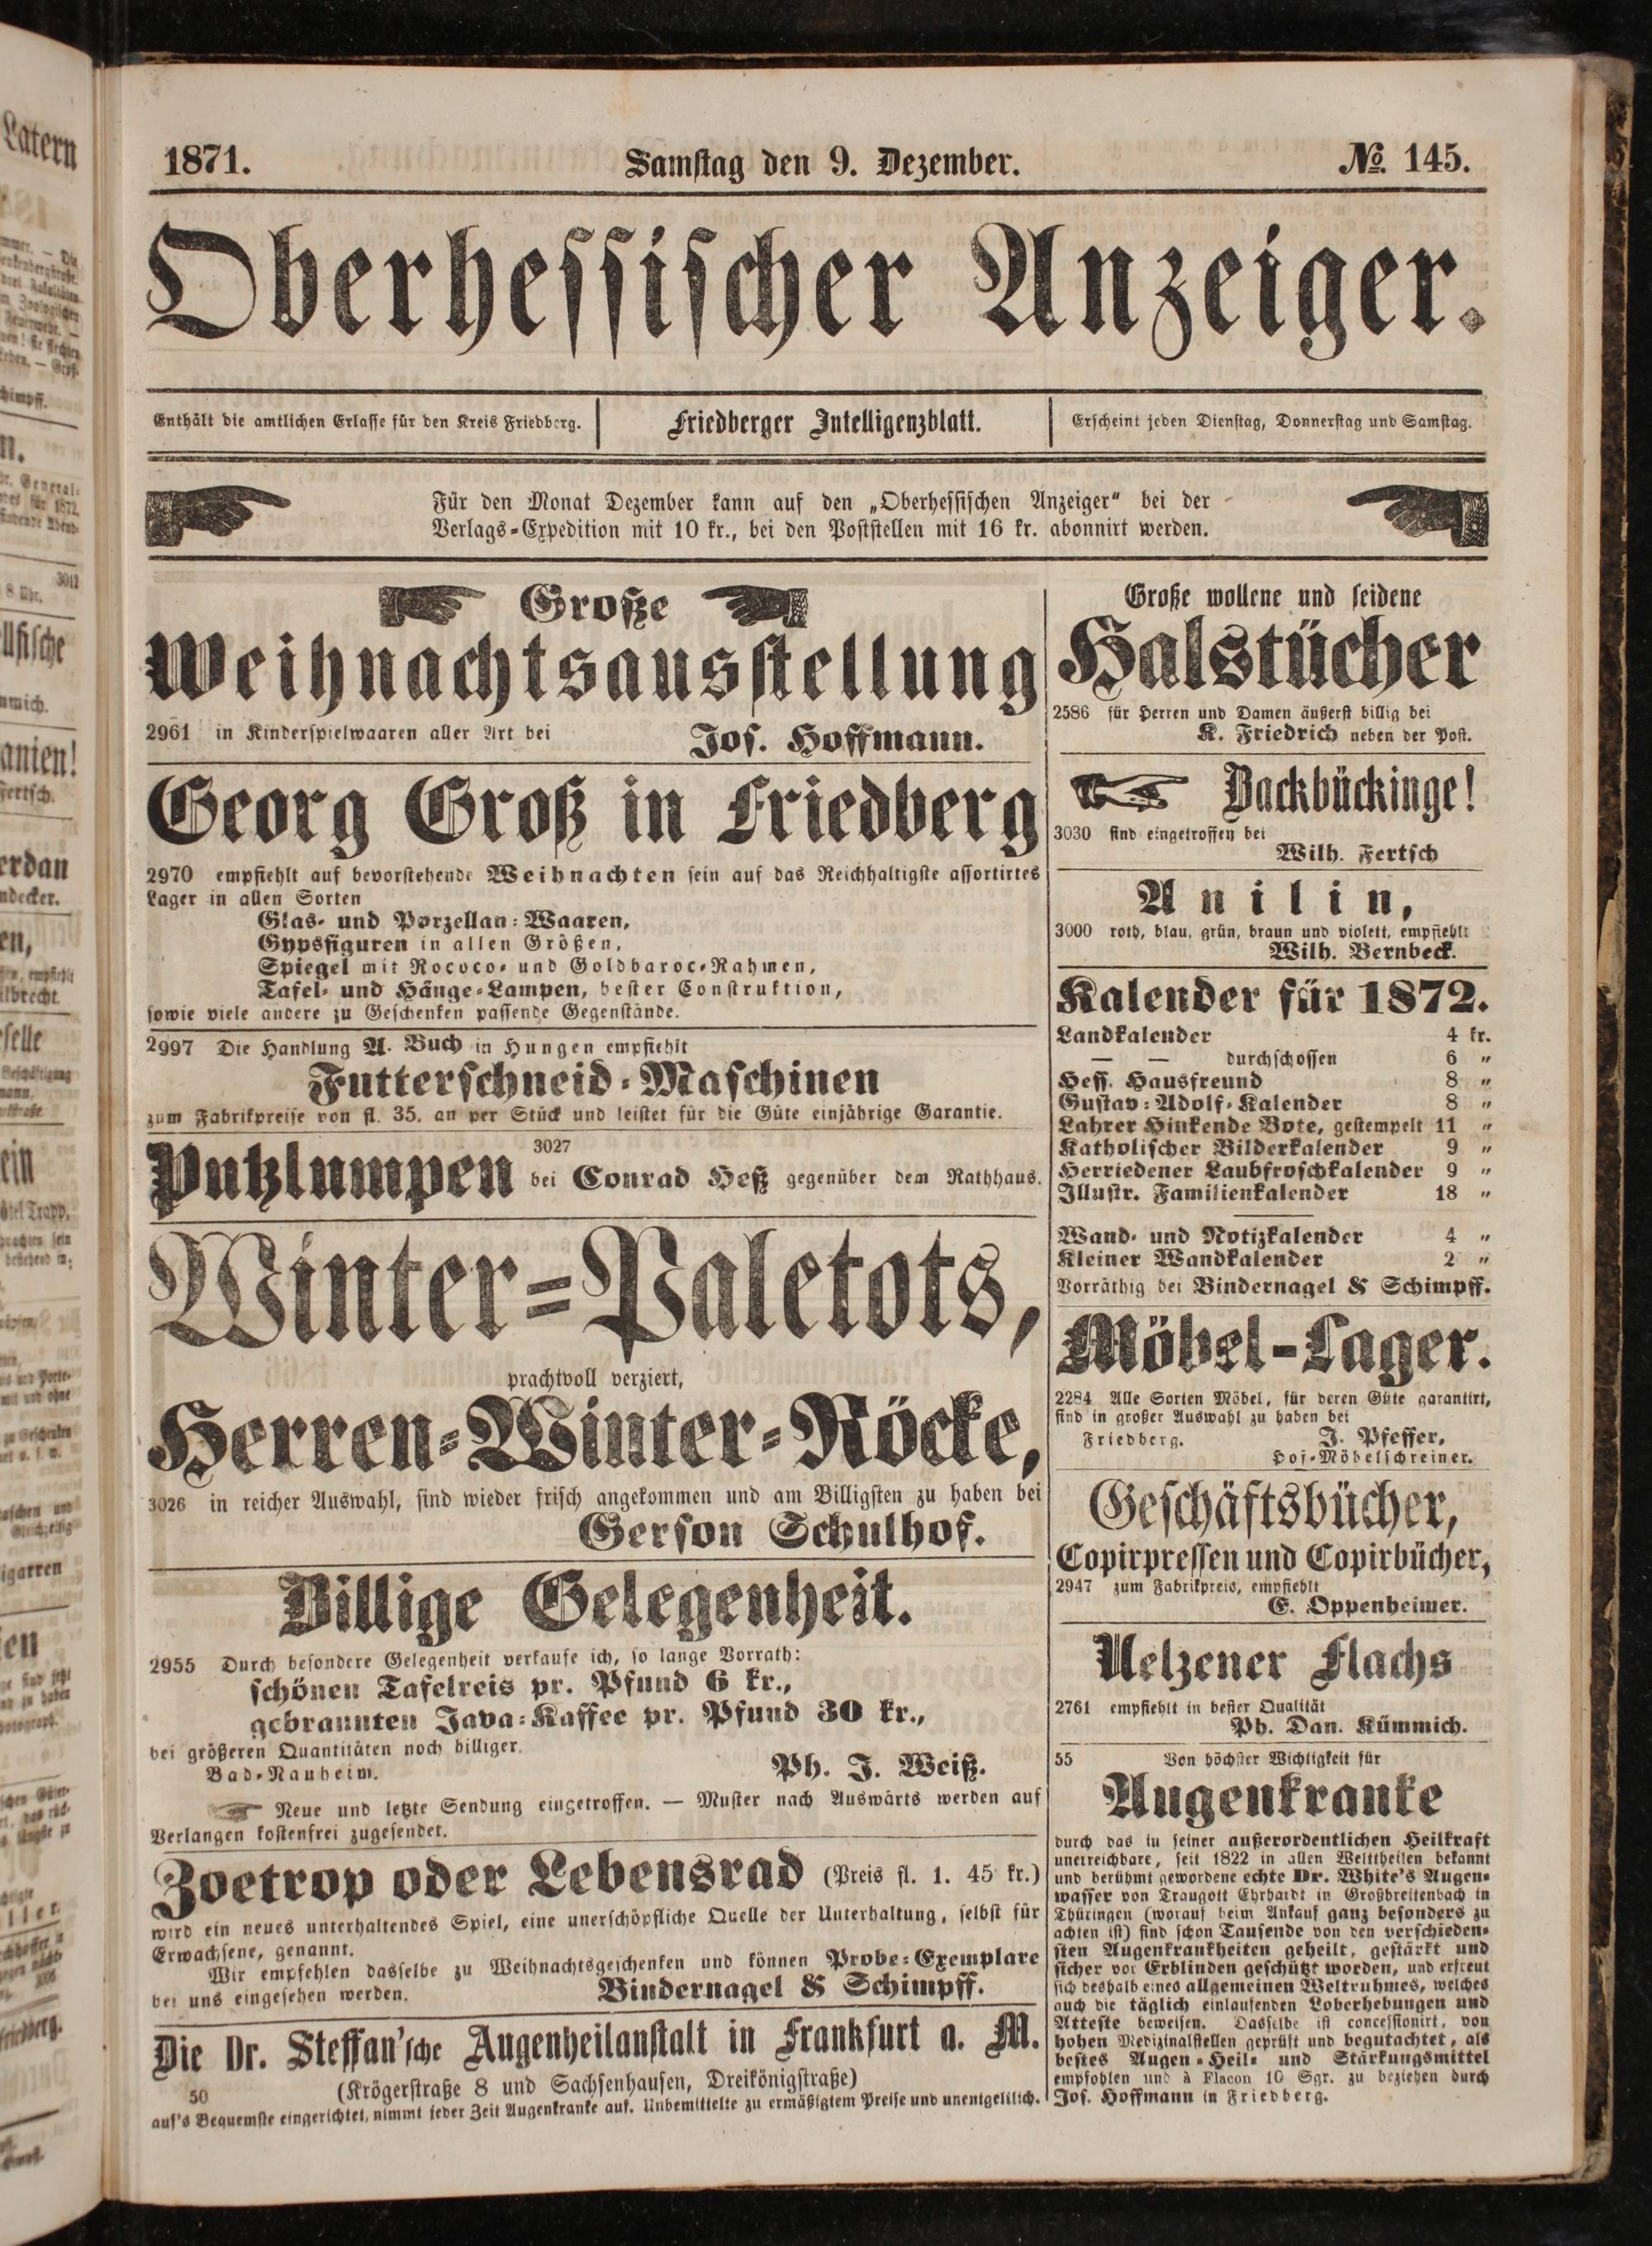 1871.
Samstag den 9. Dezember.
№ 145.
Oberhessischer Anzeiger.
Enthält die amtlichen Erlasse für den Kreis Friedberg.
Friedberger Intelligenzblatt.
Erscheint jeden Dienstag, Donnerstag und Samstag.
Für den Monat Dezember kann auf den „Oberhessischen Anzeiger“ bei der
Verlags-Expedition mit 10 kr., bei den Poststellen mit 16 kr. abonnirt werden.
Große
Weihnachtsausstellung
2961 in Kinderspielwaaren aller Art bei
Jos. Hoffmann.
Georg Groß in Friedberg
2970 empfiehlt auf bevorstehende Weihnachten sein auf das Reichhaltigste assortirtes
Lager in allen Sorten
Glas- und Porzellan-Waaren,
Gypsfiguren in allen Größen,
Spiegel mit Rococo- und Goldbaroc-Rahmen,
Tafel- und Hänge-Lampen, bester Construktion,
sowie viele andere zu Geschenken passende Gegenstände.
2997 Die Handlung A. Buch in Hungen empfiehlt
Futterschneid-Maschinen
zum Fabrikpreise von fl. 35. an per Stück und leistet für die Güte einjährige Garantie.
3027
Putzlumpen bei Conrad Heß gegenüber dem Rathhaus.
Winter-Paletots,
prachtvoll verziert,
Herren-Winter-Röcke,
3026 in reicher Auswahl, sind wieder frisch angekommen und am Billigsten zu haben bei
Gerson Schulhof.
Billige Gelegenheit.
2955 Durch besondere Gelegenheit verkaufe ich, so lange Vorrath:
schönen Tafelreis pr. Pfund 6 kr.,
gebrannten Java-Kaffee pr. Pfund 30 kr.,
bei größeren Quantitäten noch billiger.
Bad-Nauheim.
Ph. J. Weiß.
Neue und letzte Sendung eingetroffen. — Muster nach Auswärts werden auf
Verlangen kostenfrei zugesendet.
Zoetrop oder Lebensrad (Preis fl. 1. 45 kr.)
wird ein neues unterhaltendes Spiel, eine unerschöpfliche Quelle der Unterhaltung, selbst für
Erwachsene, genannt.
Wir empfehlen dasselbe zu Weihnachtsgeschenken und können Probe-Exemplare
bei uns eingesehen werden.
Bindernagel & Schimpff.
Die Dr. Steffan'sche Augenheilanstalt in Frankfurt a. M.
50 (Krögerstraße 8 und Sachsenhausen, Dreikönigstraße)
auf's Bequemste eingerichtet, nimmt jeder Zeit Augenkranke auf. Unbemittelte zu ermäßigtem Preise und unentgeltlich.
Große wollene und seidene
Halstücher
2586 für Herren und Damen äußerst billig bei
K. Friedrich neben der Post.
Backbückinge!
3030 sind eingetroffen bei
Wilh. Fertsch
Anilin,
3000 roth, blau, grün, braun und violett, empfiehlt
Wilh. Bernbeck.
Kalender für 1872.
Landkalender 4 kr.
— — durchschossen 6 „
Hess. Hausfreund 8 „
Gustav-Adolf-Kalender 8 „
Lahrer Hinkende Bote, gestempelt 11 „
Katholischer Bilderkalender 9 „
Herriedener Laubfroschkalender 9 „
Illustr. Familienkalender 18 „
Wand- und Notizkalender 4 „
Kleiner Wandkalender 2 „
Vorräthig bei Bindernagel & Schimpff.
Möbel-Lager.
2284 Alle Sorten Möbel, für deren Güte garantirt,
sind in großer Auswahl zu haben bei
Friedberg.
J. Pfeffer,
Hof-Möbelschreiner.
Geschäftsbücher,
Copirpressen und Copirbücher,
2947 zum Fabrikpreis, empfiehlt
E. Oppenheimer.
Uelzener Flachs
2761 empfiehlt in bester Qualität
Ph. Dan. Kümmich.
55 Von höchster Wichtigkeit für
Augenkranke
durch das in seiner außerordentlichen Heilkraft
unerreichbare, seit 1822 in allen Welttheilen bekannt
und berühmt gewordene echte Dr. White's Augen-
wasser von Traugott Ehrhardt in Großbreitenbach in
Thüringen (worauf beim Ankauf ganz besonders zu
achten ist) sind schon Tausende von den verschieden-
sten Augenkrankheiten geheilt, gestärkt und
sicher vor Erblinden geschützt worden, und erfreut
sich deshalb eines allgemeinen Weltruhmes, welches
auch die täglich einlaufenden Loberhebungen und
Atteste beweisen. Dasselbe ist concessionirt, von
hohen Medizinalstellen geprüft und begutachtet, als
bestes Augen-Heil- und Stärkungsmittel
empfohlen und à Flacon 10 Sgr. zu beziehen durch
Jos. Hoffmann in Friedberg.